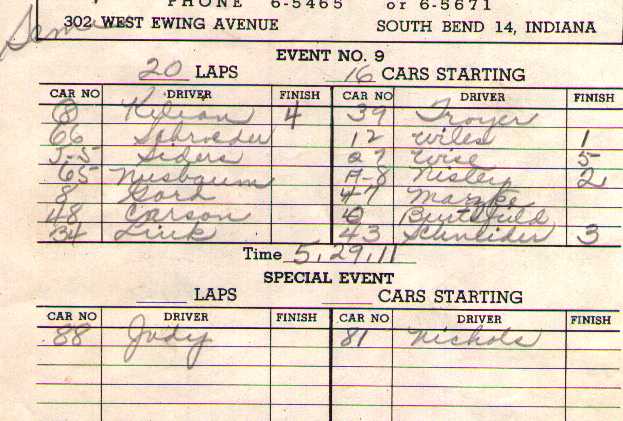 PHONE 6-5465 or 6-5671
302 WEST EWING AVENUE SOUTH BEND 14, INDIANA
EVENT NO. 9
20 LAPS 16 CARS STARTING
CAR NO DRIVER FINISH CAR NO DRIVER FINISH
8 Kilian 4 39 Troyer
66 Schroeder 12 Wiles 1
J-5 Siders 27 Wise 5
65 Nusbaum A-8 Nisley 2
8 Gord 47 Marzke
48 Carson 0
34 Link 43 Schneider 3
Time 5,29,11
SPECIAL EVENT
LAPS CARS STARTING
CAR NO DRIVER FINISH CAR NO DRIVER FINISH
88 Judy 81 Nichols